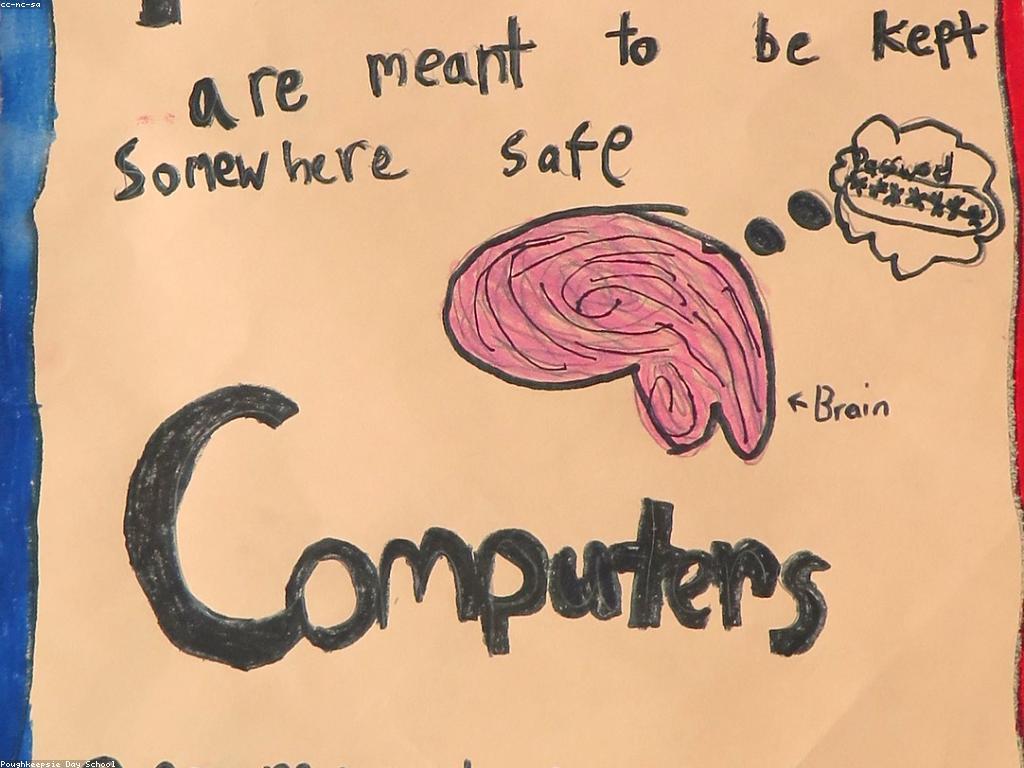 cc-nc-sa
are meant to be kept
somewhere safe
Password
*******
Brain
Computers
Poughkeepsie Day School